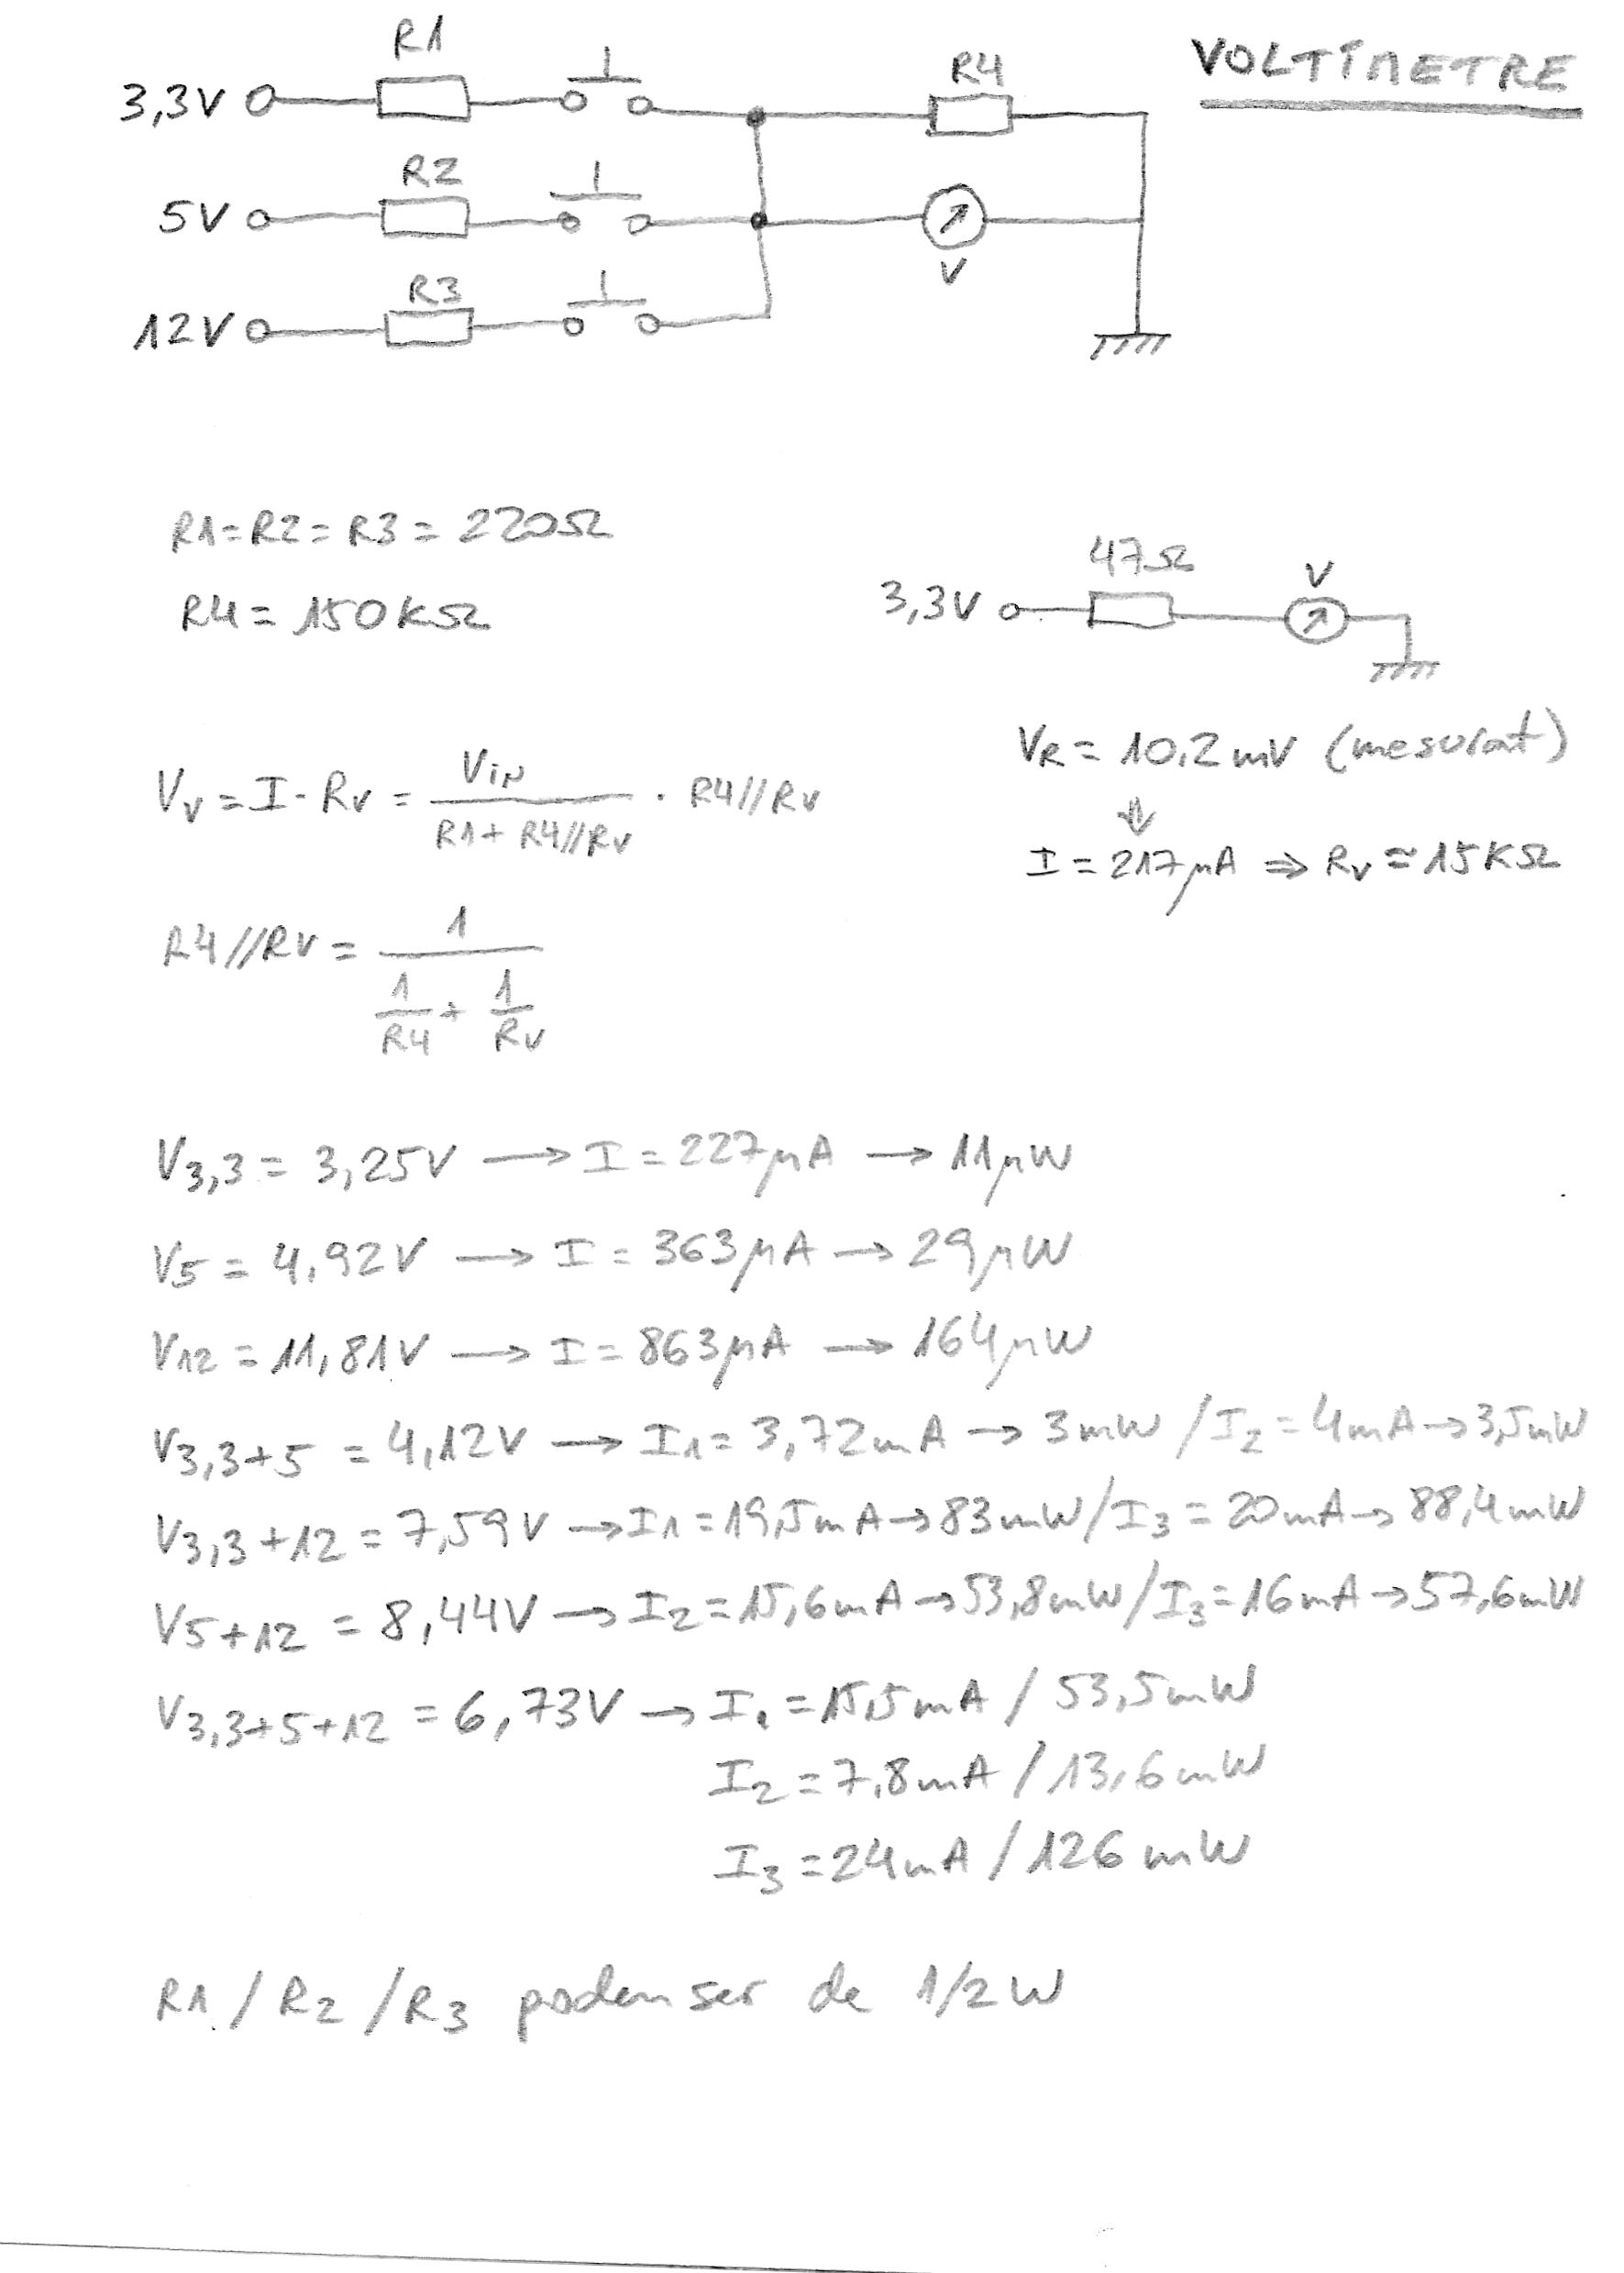 VOLTÍMETRE
R1
3,3V
R4
R2
5V
V
R3
12V
R1=R2=R3=220Ω
R4=150KΩ
47Ω
3,3V
V
VR=10,2mV (mesurat)
⇓
I=217μA ⇒ Rv≈15KΩ
Vv=I·Rv= Vin / R1+R4//Rv · R4//Rv
R4//RV= 1 / 1/R4 + 1/Rv
V3,3=3,25V → I=227μA → 11μW
V5=4,92V → I=363μA → 29μW
V12=11,81V → I=863μA → 164μW
V3,3+5=4,12V → I1=3,72mA → 3mW / I2=4mA → 3,5mW
V3,3+12=7,59V → I1=19,5mA → 83mW / I3=20mA → 88,4mW
V5+12=8,44V → I2=15,6mA → 53,8mW / I3=16mA → 57,6mW
V3,3+5+12=6,73V → I1=15,5mA / 53,5mW
I2=7,8mA / 13,6mW
I3=24mA / 126mW
R1 / R2 / R3 poden ser de 1/2W